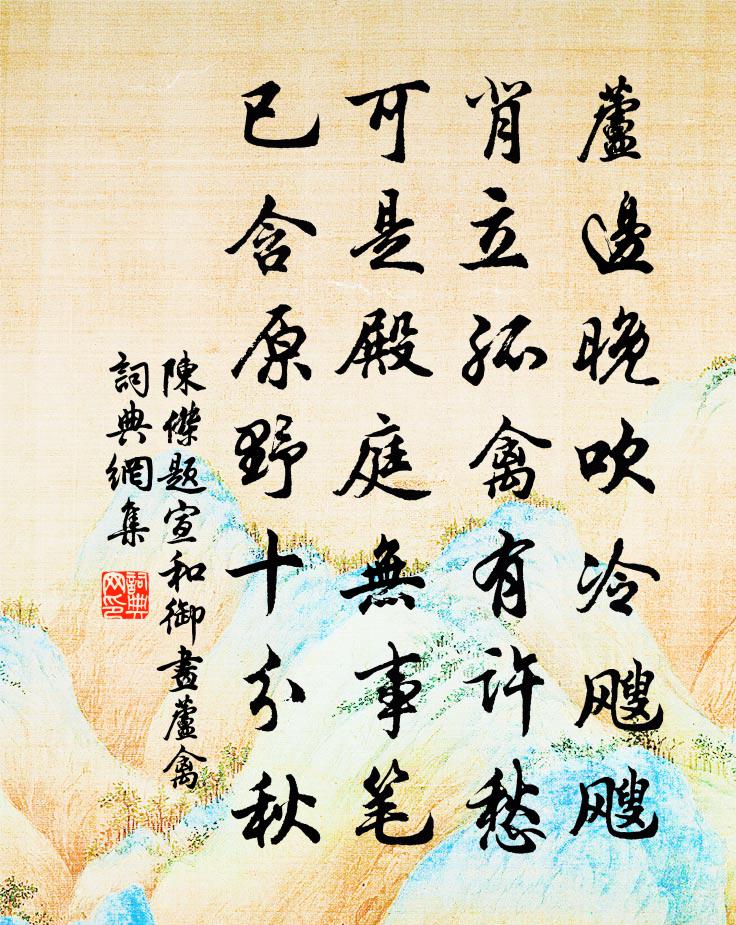 蘆邊晚吹冷颼颼
背立孤禽有许愁
可是殿庭無事笔
已含原野十分秋
陳傑题宣和御畫蘆禽
詞典網集
詞典网印